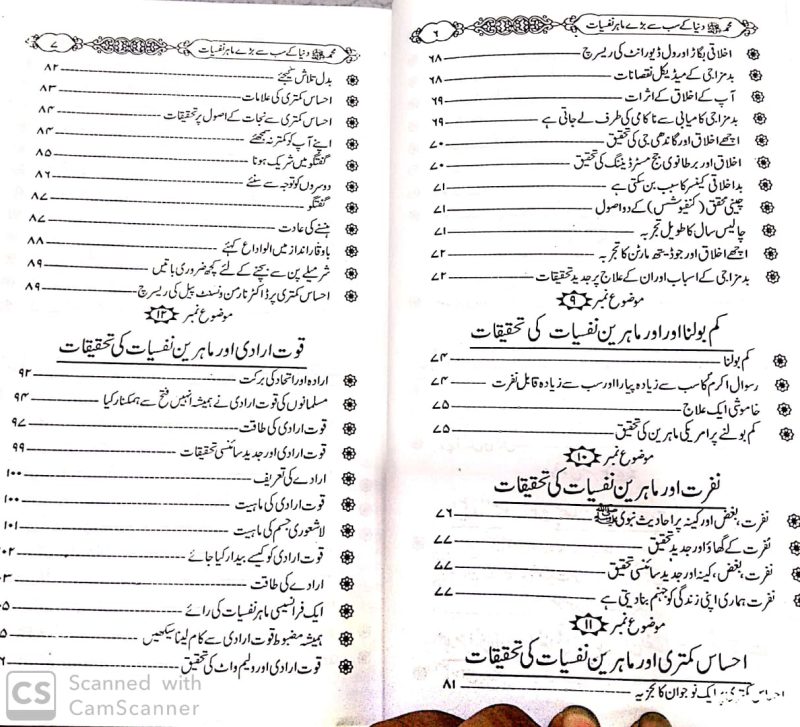 محمد ﷺ دنیا کے سب سے بڑے ماہر نفسیات ۶
اخلاقی بگاڑ اور ول ڈیورانٹ کی ریسرچ ۶۸
بدمزاجی کے میڈیکل نقصانات ۶۸
آپ کے اخلاق کے اثرات ۶۹
بدمزاجی کامیابی سے ناکامی کی طرف لے جاتی ہے ۶۹
اچھے اخلاق اور گاندھی جی کی تحقیق ۷۰
اخلاق اور برطانوی جج مسٹر ڈیننگ کی تحقیق ۷۰
بداخلاقی کینسر کا سبب بن سکتی ہے ۷۱
چینی محقق (کنفیوشس) کے دو اصول ۷۱
چالیس سال کا طویل تجربہ ۷۱
اچھے اخلاق اور جوڈیتھ مارٹن کا تجربہ ۷۲
بدمزاجی کے اسباب اور ان کے علاج پر جدید تحقیقات ۷۲
موضوع نمبر ۹
کم بولنا اور اور ماہرین نفسیات کی تحقیقات
کم بولنا ۷۴
رسوال اکرمؐ کا سب سے زیادہ پیارا اور سب سے زیادہ قابل نفرت ۷۴
خاموشی ایک علاج ۷۵
کم بولنے پر امریکی ماہرین کی تحقیق ۷۵
موضوع نمبر ۱۰
نفرت اور ماہرین نفسیات کی تحقیقات
نفرت، بغض اور کینہ پر احادیث نبوی ﷺ ۷۶
نفرت کے گھاؤ اور جدید تحقیق ۷۷
نفرت، بغض، کینہ اور جدید سائنسی تحقیق ۷۷
نفرت ہماری اپنی زندگی کو جہنم بنا دیتی ہے ۷۷
موضوع نمبر ۱۱
احساس کمتری اور ماہرین نفسیات کی تحقیقات
احساس کمتری پر ایک نوجوان کا تجزیہ ۸۱
محمد ﷺ دنیا کے سب سے بڑے ماہر نفسیات ۷
بدل تلاش کیجئے ۸۲
احساس کمتری کی علامات ۸۳
احساس کمتری سے نجات کے اصول پر تحقیقات ۸۴
اپنے آپ کو کمتر نہ سمجھئے ۸۴
گفتگو میں شریک ہونا ۸۵
دوسروں کو توجہ سے سنئے ۸۶
گفتگو ۸۷
ہنسنے کی عادت ۸۷
باوقار انداز میں الوداع کہئے ۸۸
شرمیلے پن سے بچنے کے لئے کچھ ضروری باتیں ۸۹
احساس کمتری پر ڈاکٹر نارمن ونسنٹ پیل کی ریسرچ ۸۹
موضوع نمبر ۱۲
قوت ارادی اور ماہرین نفسیات کی تحقیقات
ارادہ اور اتحاد کی برکت ۹۲
مسلمانوں کی قوت ارادی نے ہمیشہ انہیں فتح سے ہمکنار کیا ۹۴
قوت ارادی کی طاقت ۹۷
قوت ارادی اور جدید سائنسی تحقیقات ۹۹
ارادے کی تعریف ۱۰۰
قوت ارادی کی ماہیت ۱۰۰
لاشعوری جسم کی ماہیت ۱۰۱
قوت ارادی کو کیسے بیدار کیا جائے ۱۰۲
ارادے کی طاقت
ایک فرانسیسی ماہر نفسیات کی رائے
ہمیشہ مضبوط قوت ارادی سے کام لینا سیکھیں
قوت ارادی اور ولیم واٹ کی تحقیق
CS Scanned with
CamScanner